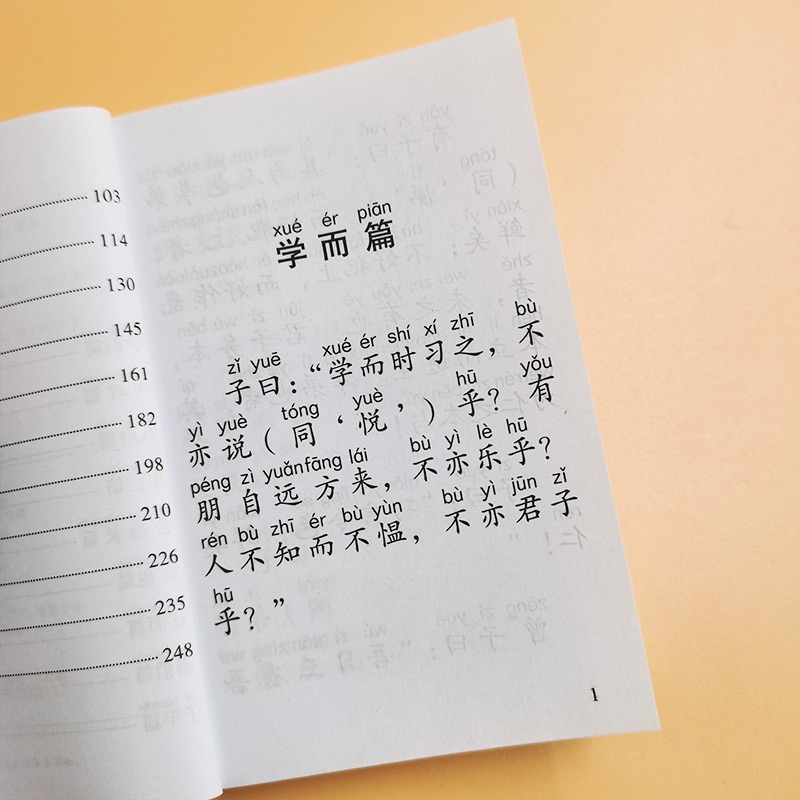 103
114
130
145
161
182
198
210
226
235
248
xué ér piān
学而篇
zǐ yuē xué ér shí xí zhī bù
子曰：“学而时习之，不
yì yuè tóng yuè hū yǒu
亦说（同‘悦’）乎？有
péng zì yuǎnfāng lái bù yì lè hū
朋自远方来，不亦乐乎？
rén bù zhī ér bù yùn bù yì jūn zǐ
人不知而不愠，不亦君子
hū
乎？”
1